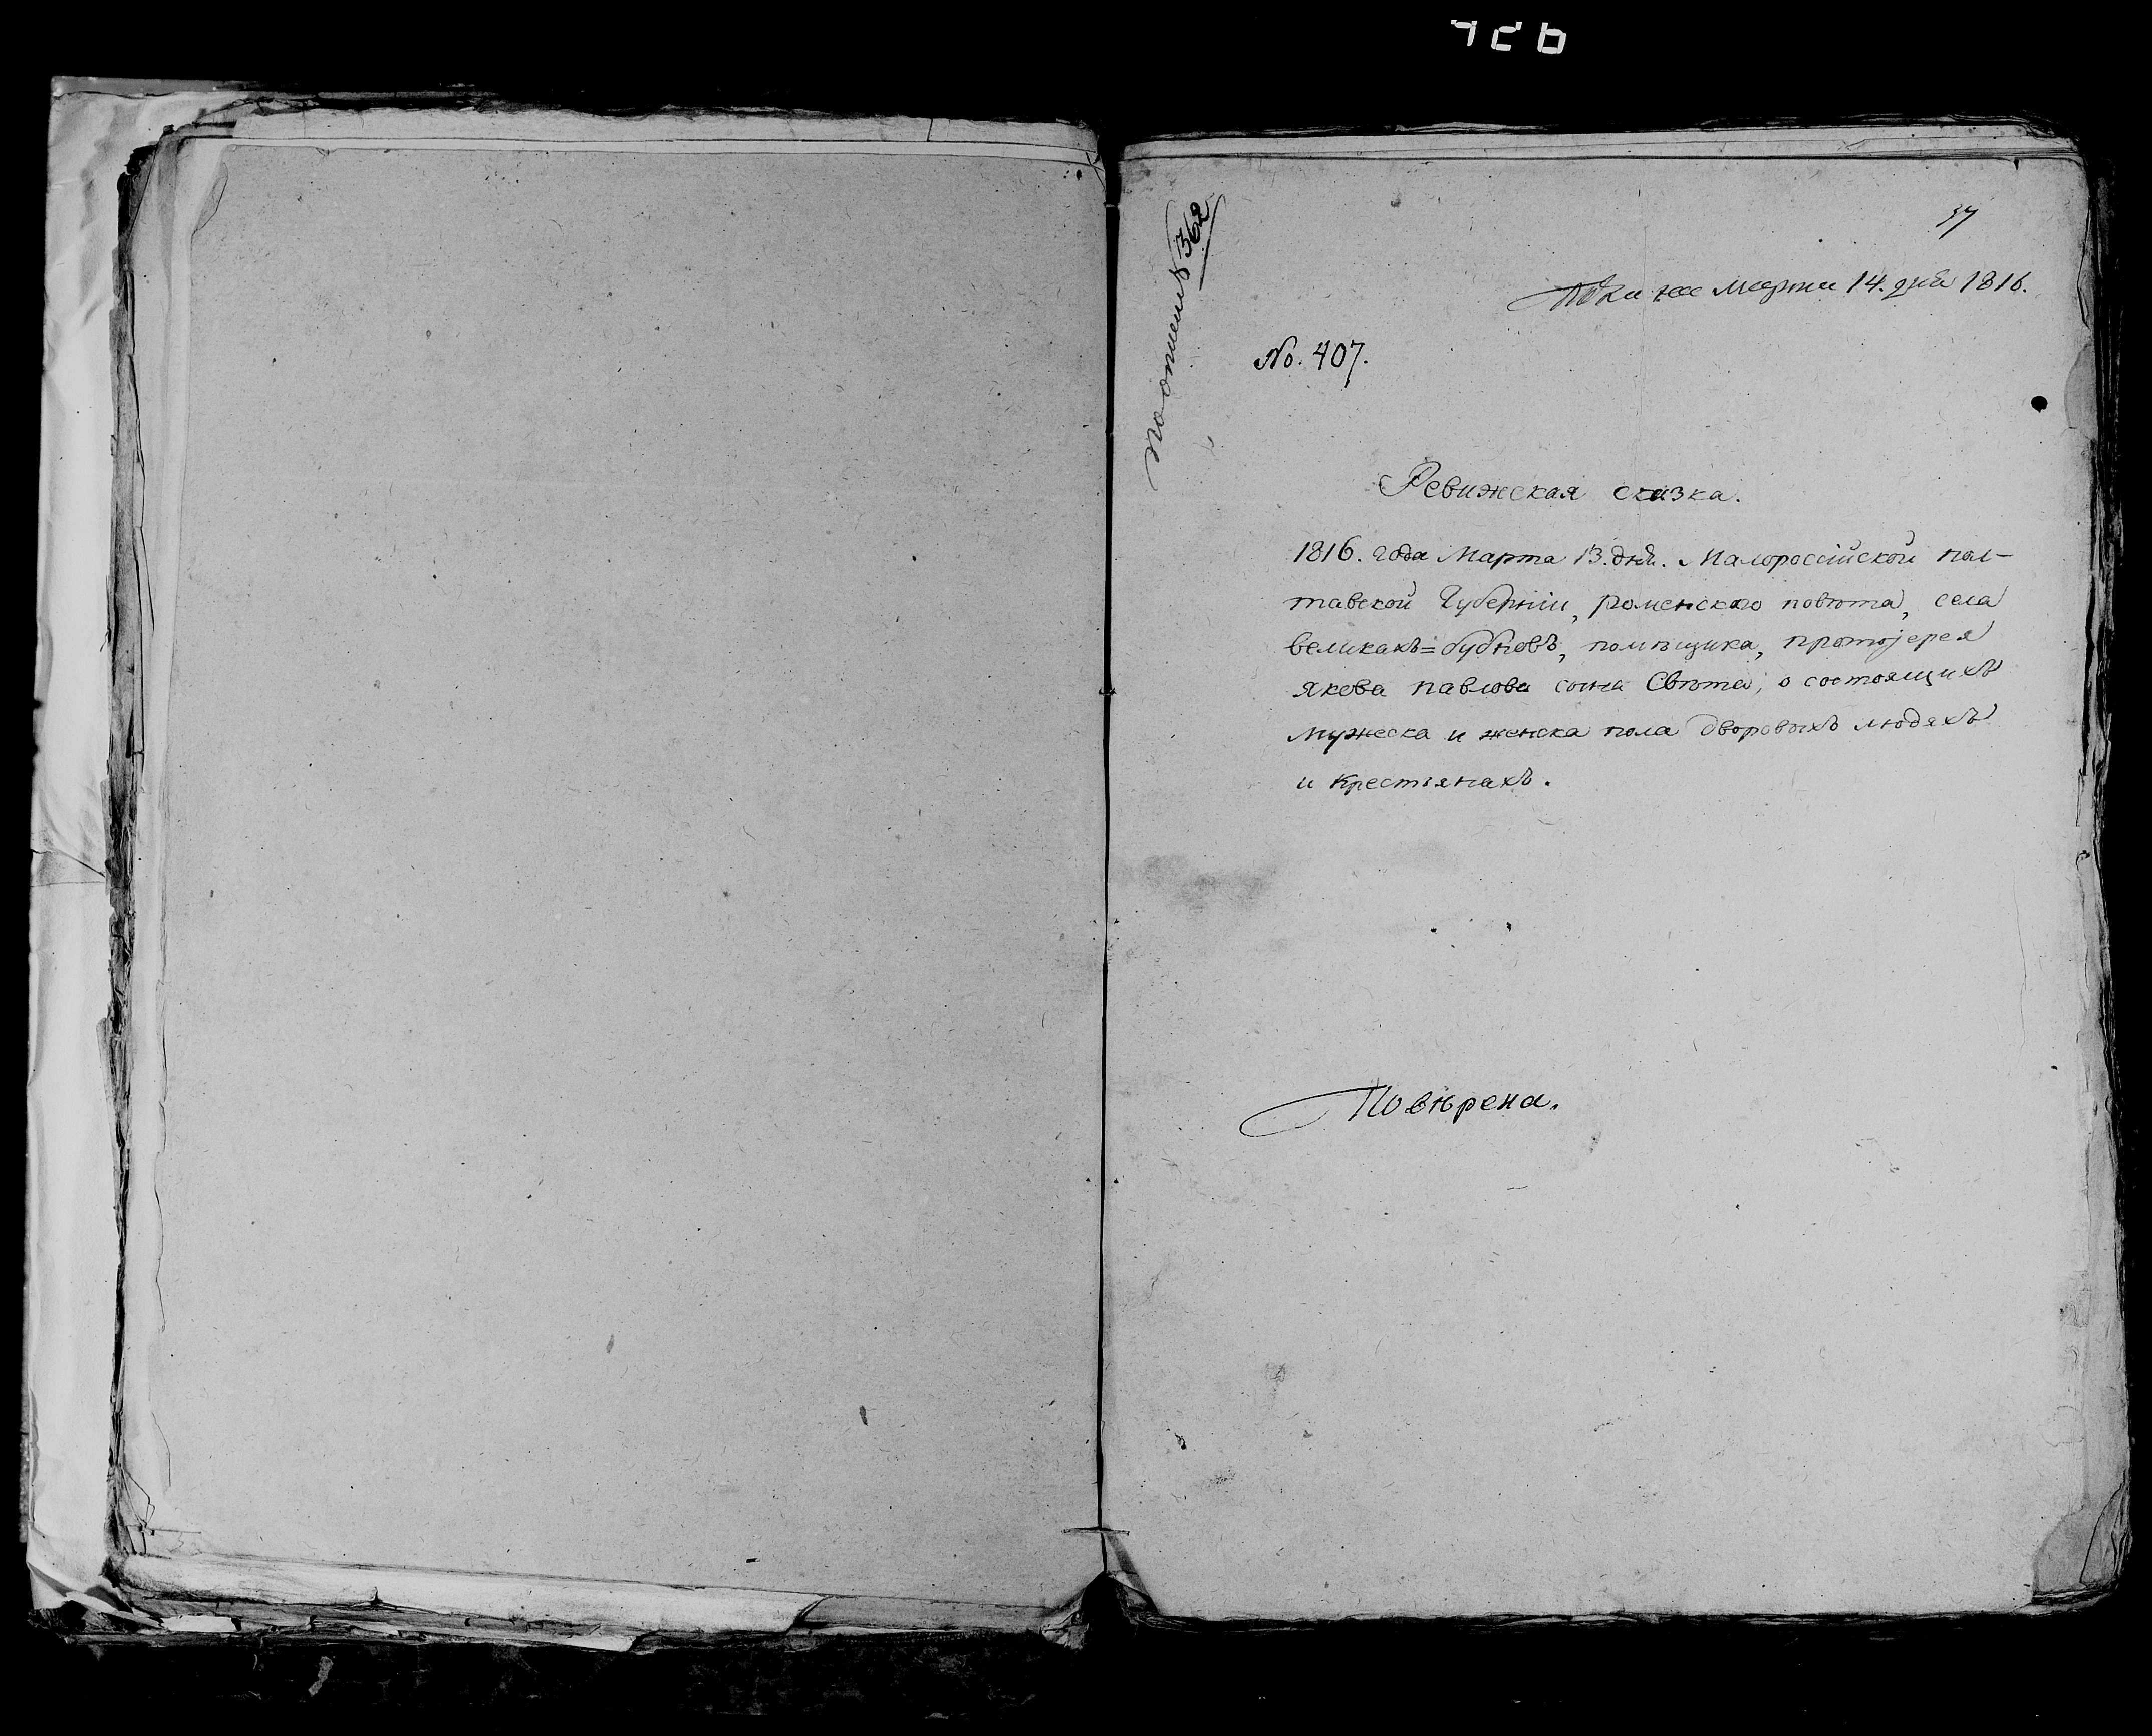 37
Марта 14. дня 1816.
No. 407.
362
Ревижская сказка.
1816. года Марта 13. дня. Малороссійской пол-
тавской Губерніи, роменского повѣта, села
великахъ=бубновъ, помѣщика, протоjерея
якова павлова сына Свѣта, о состоящихъ
мужеска и женска пола дворовыхъ людяхъ
и крестьянахъ.
Повѣрена.